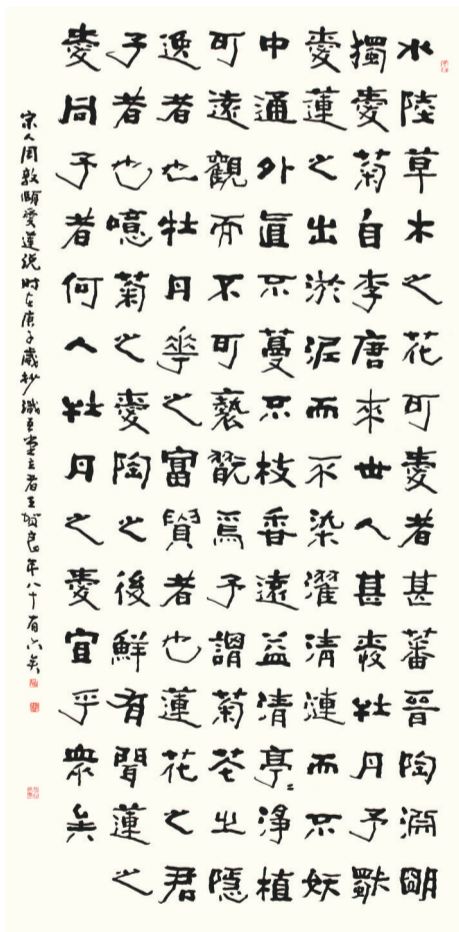 水陸草木之花可愛者甚蕃晉陶淵明
獨愛菊自李唐來世人甚愛牡丹予獨
愛蓮之出淤泥而不染濯清漣而不妖
中通外直不蔓不枝香遠益清亭〻淨植
可遠觀而不可褻翫焉予謂菊花之隱
逸者也牡丹華之富貴者也蓮花之君
子者也噫菊之愛陶之後鮮有聞蓮之
愛同予者何人牡丹之愛宜乎眾矣
宋人周敦頤愛蓮說時在庚子歲杪識吾堂主者王良年八十有六矣